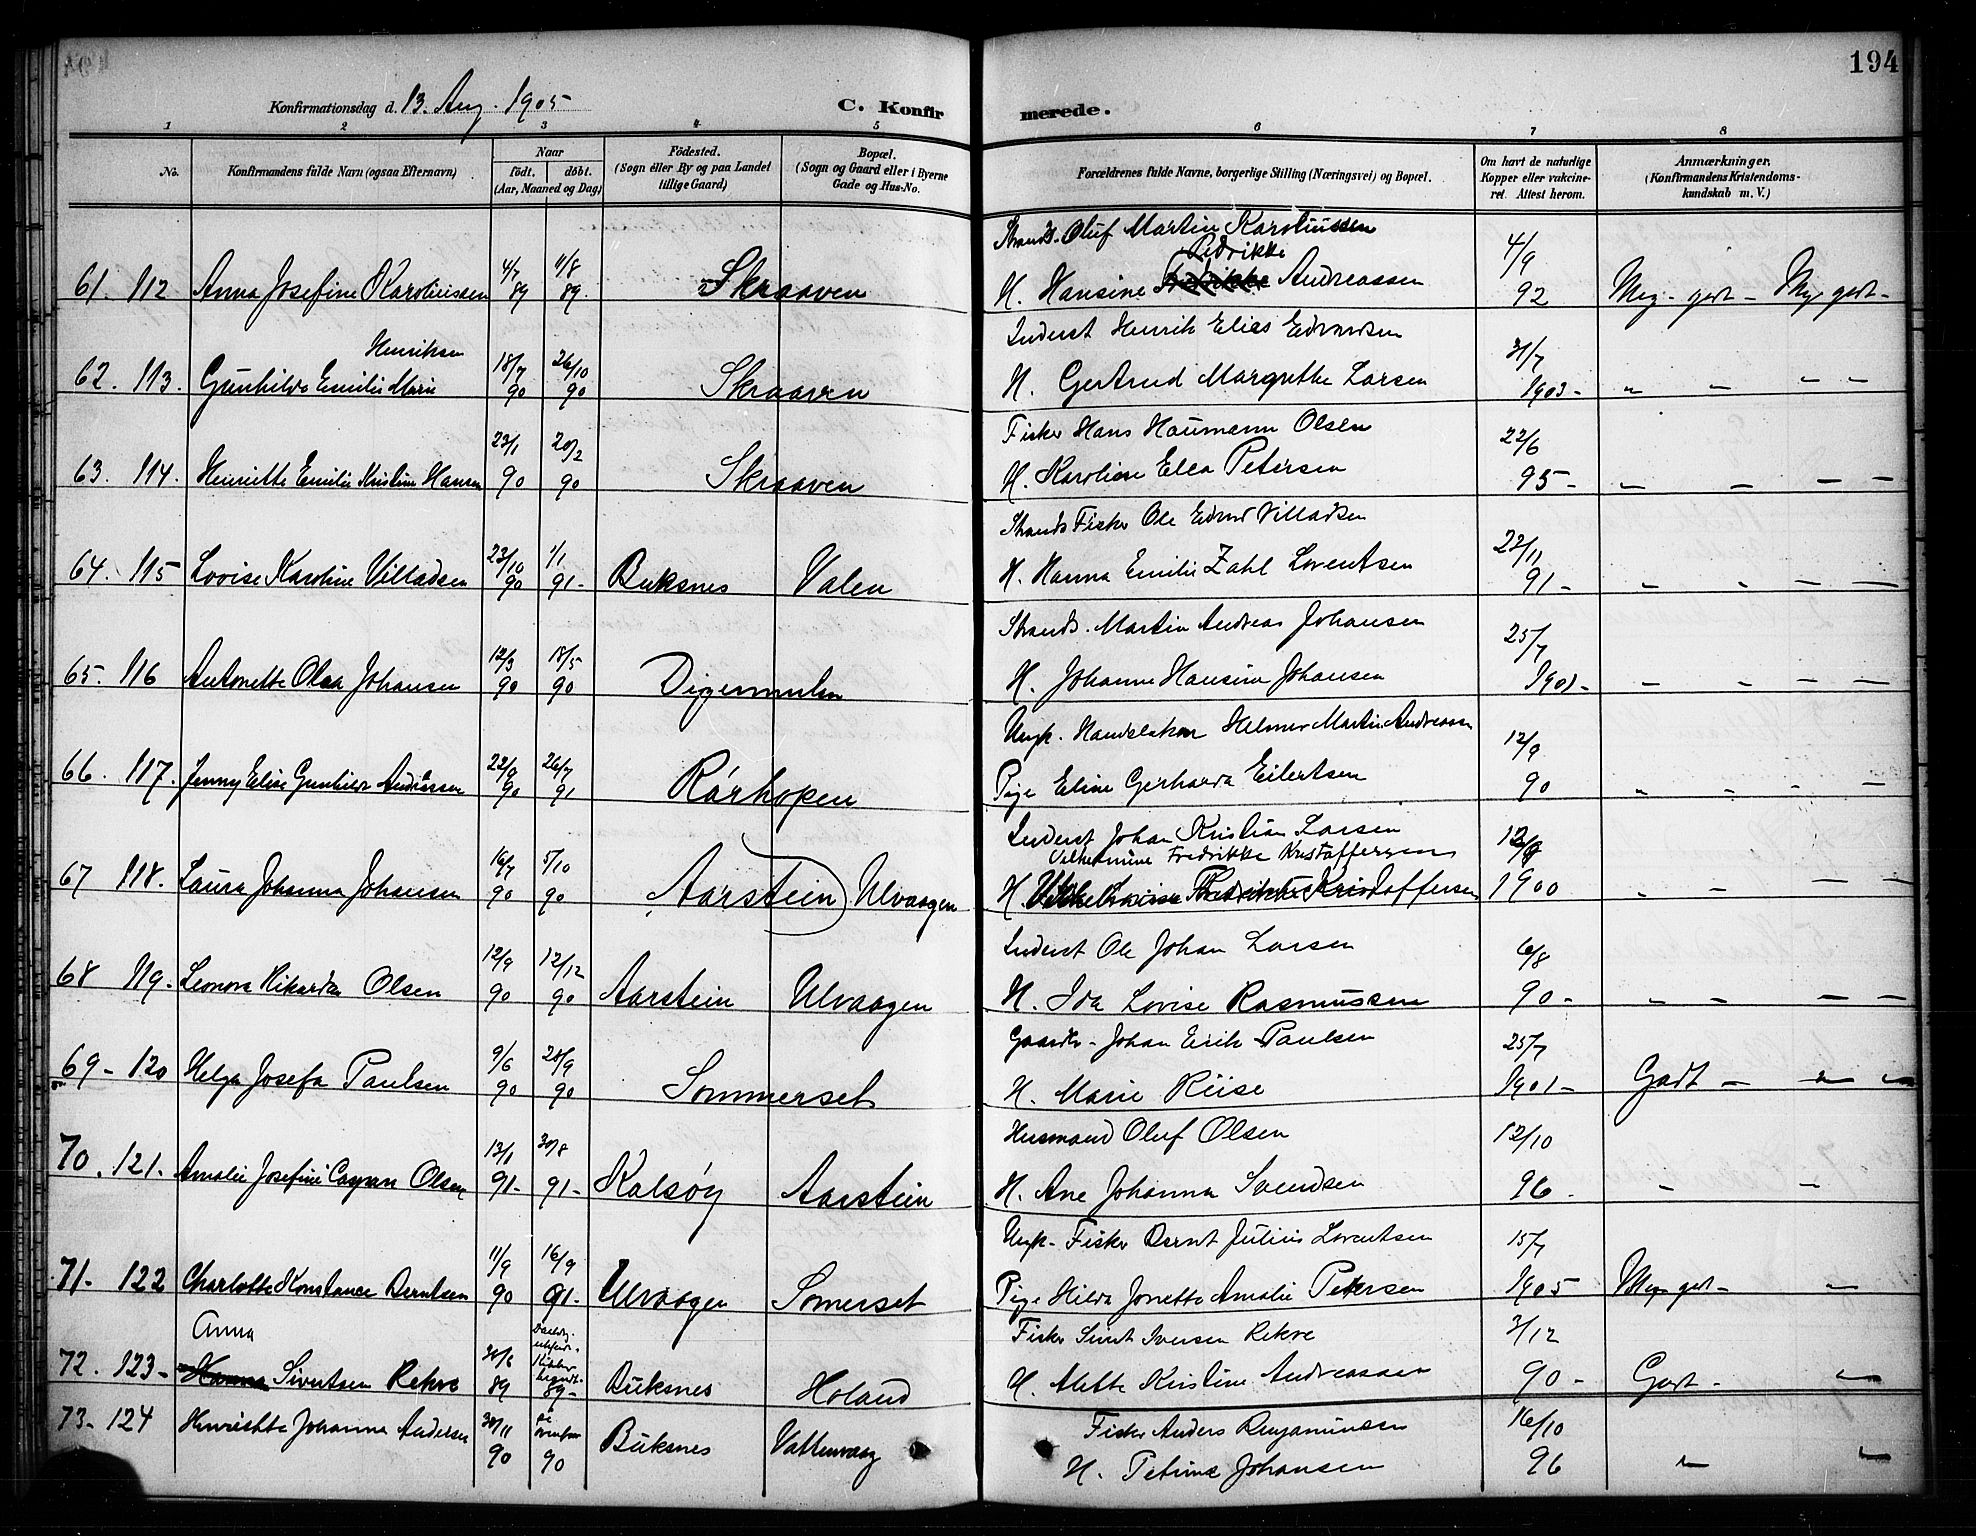 194
Konfirmationsdag d. 13. Aug. 1905
C. Konfir merede.
1 2 3 4 5 6 7 8
No.
Konfirmandens fulde Navn (ogsaa Efternavn)
Naar
födt. döbt.
(Aar, Maaned og Dag)
Födested.
(Sogn eller By og paa Landet
tillige Gaard)
Bopæl.
(Sogn og Gaard eller i Byerne
Gade og Hus-No.
Forældrenes fulde Navne, borgerlige Stilling (Næringsvei) og Bopæl.
Om havt de naturlige
Kopper eller vakcine-
ret. Attest herom.
Anmærkninger.
(Konfirmandens Kristendoms-
kundskab m. V.)
Strands. Oluf Martin Karoliussen
Pedrikke
61. 112 Anna Josefine Karoliussen 4/7 89 11/8 89. Skraaven H. Hansine Fredrikke Andreassen 4/9 92 Meg. godt - Meg. godt -
Inderst Henrik Elias Edvardsen
Henriksen
62. 113. Gunhilda Emilie Marie 18/7 90 26/10 90 Skraaven H. Gertrud Margrethe Larsen 31/7 1903 - " - - -
Fisker Hans Haumann Olsen
63. 114. Henriette Emilie Kristine Hansen 23/1 90 20/2 90 Skraaven H. Karoline Elea Petersen 22/6 95 - - - - -
Strands. Fisker Ole Edvard Villadsen
64. 115 Lovise Karoline Villadsen 23/10 90 1/1 91 - Buksnes Valen H. Hanna Emilie Zahl Lorentsen 22/11 91 - - - - -
Strands. Martin Andreas Johansen
65. 116 Antonette Olea Johansen 12/3 90 18/5 90 Digermulen H. Johanne Hansine Johansen 25/7 1901 - - - - -
Ungk. Handelskar Helmer Martin Andreassen
66. 117. Jenny Elise Gunhild Andreassen 22/9 90 26/7 91 Rørhopen Pige Eline Gerharda Eilertsen 12/9 90 " - - -
Inderst Johan Kristian Larsen
Vilhelmine Fredrikke Kristoffersen
67 118. Laura Johanna Johansen 16/7 90 5/10 90 Aarstein Ulvaagen H. Fredrikke Kristoffersen 1900 " - - -
Inderst Ole Johan Larsen
68 119. Leonora Rikarda Olsen 12/9 90 12/12 90 Aarstein Ulvaagen H. Ida Lovise Rasmussen 6/8 90 - " - - -
Gaardb. Johan Erik Paulsen
69 - 120 Helga Josefa Paulsen 9/6 90 20/9 90 Sommerset H. Marie Riise 25/7 1901 - Godt - " -
Husmand Oluf Olsen
70. 121. Amalie Josefine Olsen 13/1 91 - 30/8 91 - Kalsøy Aarstein H. Ane Johanna Svendsen 12/10 96. " -
Ungk. Fisker Bernt Julius Lorentsen
71 - 122 Charlotte Konstance Berntsen 11/9 90 16/9 91 - Ulvaagen Somerset Pige Hilda Jonette Amalie Petersen 15/7 1905 Meg. godt - -
Anna
Fisker Sivert Iversen Rekve
72. 123 - Hanna Sivertsen Rekve 30/6 89 89 - Buksnes Holand H. Mette Kristine Andreassen 3/12 90 - Godt - -
Fisker Anders Benjaminsen
73 - 124 Henriette Johanna Andersen 30/11 90 90 Buksnes Vattervaag H. Petrine Johansen 16/10 96 " -